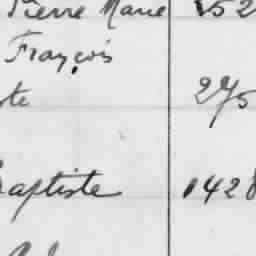 Pierre Marie 252
François
te 275
Baptiste 1428